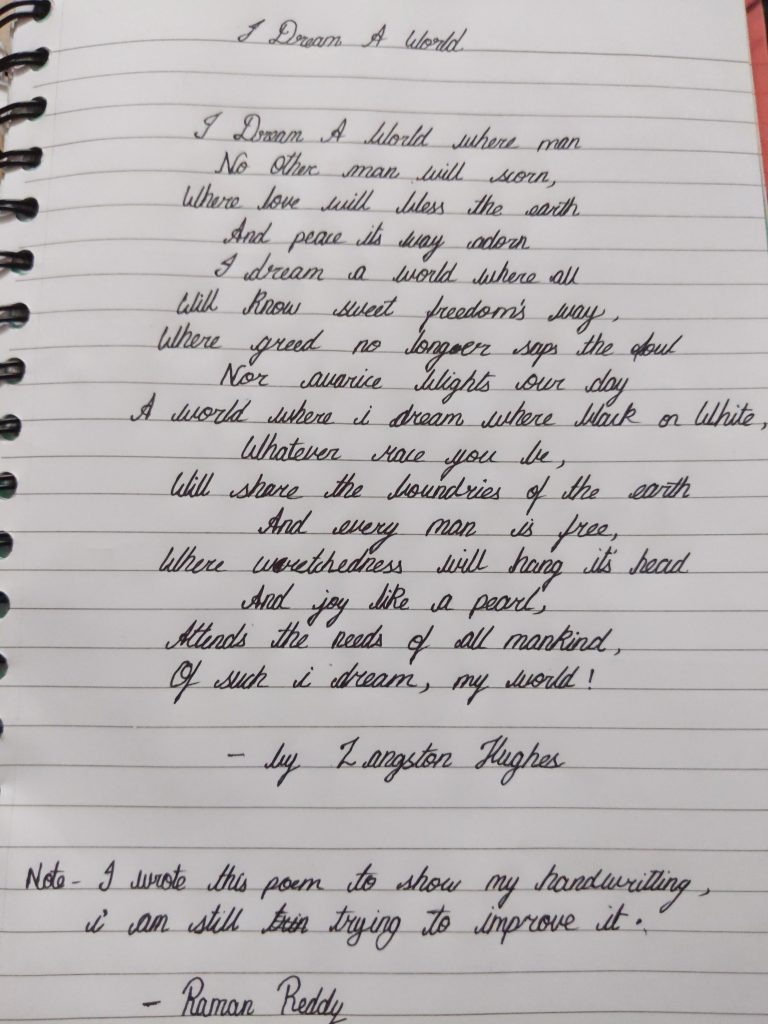 I Dream A World
I Dream A World where man
No Other man will scorn,
Where love will bless the earth
And peace its way adorn
I dream a world where all
Will Know sweet freedom's way,
Where greed no longer saps the soul
Nor avarice blights our day
A world where i dream where black or White,
Whatever race you be,
Will share the boundries of the earth
And every man is free,
Where wretchedness will hang its' head
And joy like a pearl,
Attends the needs of all mankind,
Of such i dream, my world!
- by Langston Hughes
Note - I wrote this poem to show my handwritting,
i am still trying to improve it.
- Raman Reddy